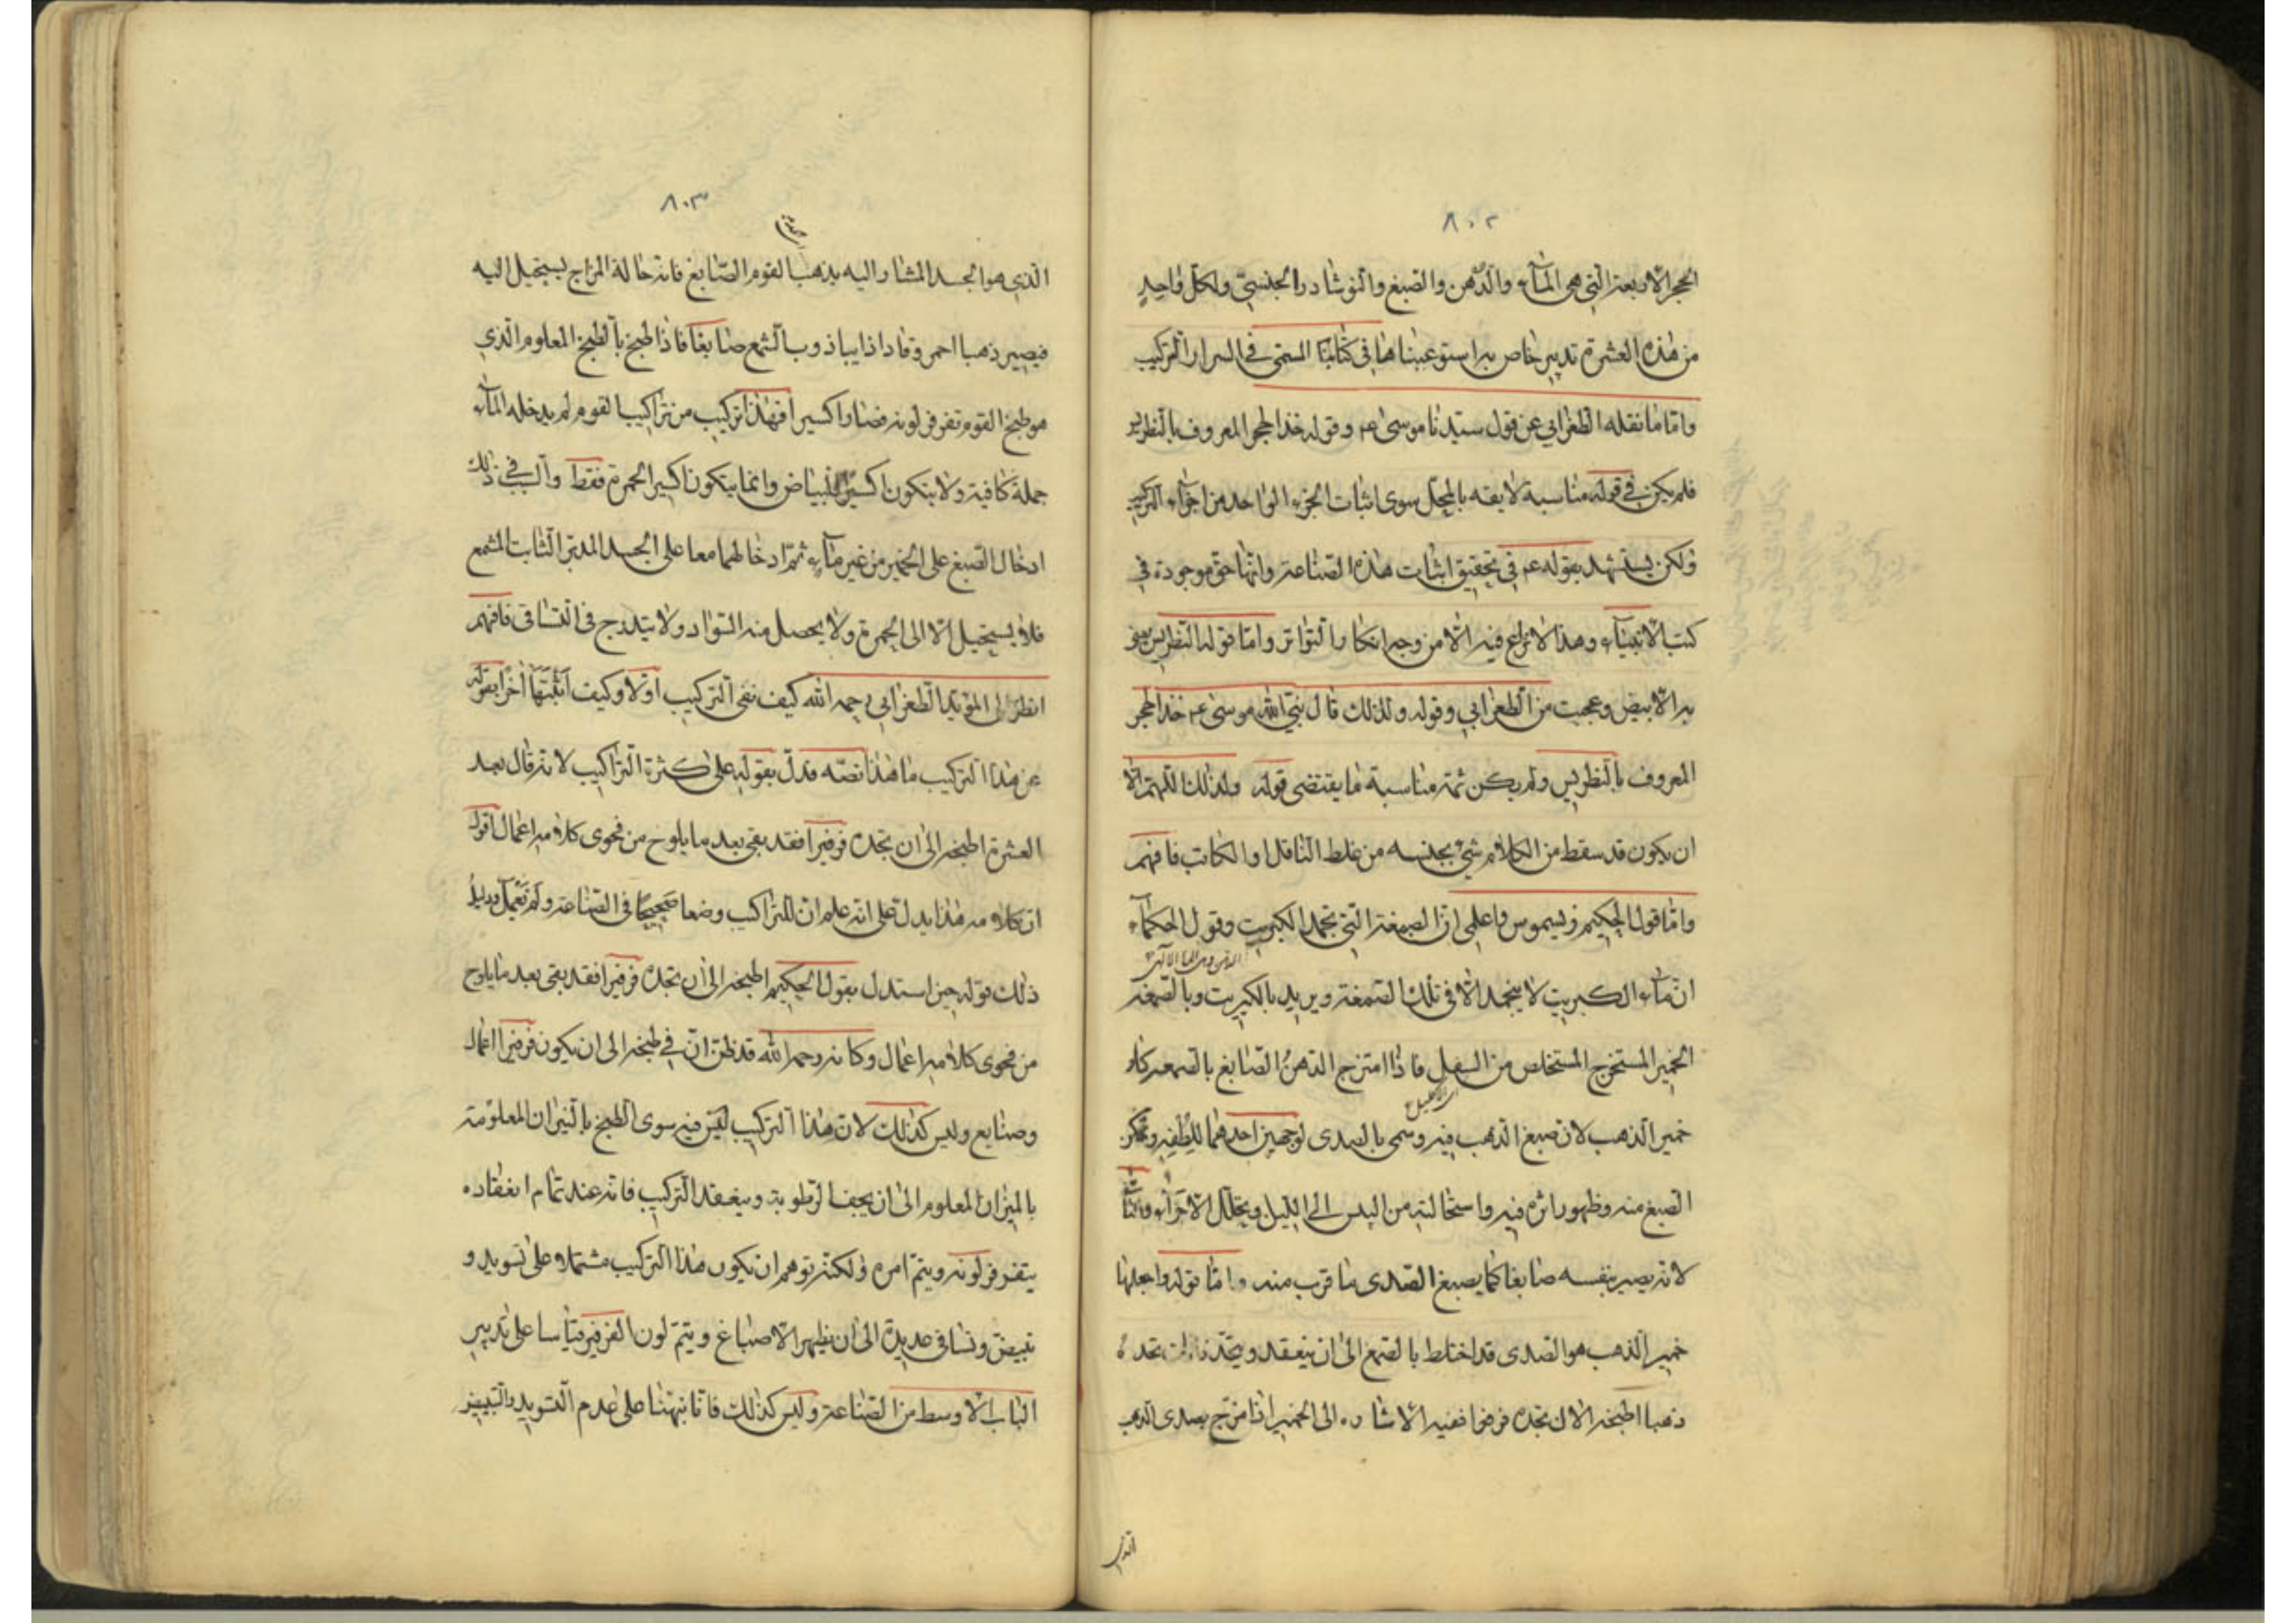 ٨٠٢
الحجر الاربعة التي هي المآء والدهن والصبغ والنوشادر الجنسي ولكل واحد
من هذه العشرة تدبير خاص به استوعبناها في كتابنا المسمى في السرار التركيب
واما ما نقله الطغرابي عن قول سيدنا موسى عم وقوله خذ الحجر المعروف بالنطريس
فلم يكن في قوله مناسبة لايقه بالمحل سوى اثبات الجزء الواحد من اجزآء التركيب
ولكن يستشهد بقوله عم في تحقيق اثبات هذه الصناعة وانها حق موجودة في
كتب الانبيآء وهذا لا نزاع فيه الا من وجه انكار التواتر واما قوله النطريس يعني
به الابيض وعجبت من الطغرابي وقوله ولذلك قال نبي الله موسى عم خذ الحجر
المعروف بالنطريس ولم يكن ثمة مناسبة ما يقتضى قوله ولذلك اللهم الا
ان يكون قد سقط من الكلام شئ بجنسه من غلط الناقل او الكاتب فافهم
واما قول الحكيم ذيسيموس واعلمي ان الصمغة التي تجمد الكبريت وقول الحكمآء
ان مآء الكبريت لا ينجمد الا في تلك الصمغة ويريد بالكبريت وبالصمغة
الخمير المستخرج المستخلص من السفل فاذا امتزج الدهن الصابغ بالصمغه كان
خمير الذهب لان صبغ الذهب فيه وسمى بالصدى لوجهين احدهما للطفه وتمكن
الصبغ منه وظهور اثره فيه واستحالته من اليبس الى الليل وتحلل الاجزآء والثاني
لانه يصير بنفسه صابغا كما يصبغ الصدى ما قرب منه واما قوله واجعلها
خمير الذهب هو الصدى قد اختلط بالصمغ الى ان ينعقد ويتحد تجده
ذهبا اطبخه الى ان تجده فرفيرا ففيه الاشاره الى الخمير اذا امتزج بصدى الذهب
الذي
٨٠٣
الذي هو الجسد المشار اليه بذهب القوم الصابغ فانه حالة المزاج يستحيل اليه
فيصير ذهبا احمر وقادا ذايبا ذوب الشمع صابغا فاذا طبخ بالطبخ المعلوم الذي
هو طبخ القوم تفرفر لونه فصار اكسيرا فهذا تركيب من تراكيب القوم لم يدخله المآء
جملة كافية ولا يتكون اكسير البياض وانما يتكون اكسير الحمرة فقط والسبب في ذلك
ادخال الصبغ على الخمير من غير مآء ثم ادخالهما معا على الجسد المدبر الثابت المشمع
فلا يستحيل الا الى الحمرة ولا يحصل منه السواد ولا يتدرج في التساقى فافهم
انظر الى المؤيد الطغرابي رحمه الله كيف نفى التركيب اولا وكيف اثبتها اخرا بقوله
عن هذا التركيب ما هذا نصه فدل بقوله على كثرة التراكيب لانه قال بعد
العشرة اطبخه الى ان تجده فرفيرا فقد بقى بعد ما يلوح من فحوى كلامه اعمال اقول
ان كلامه هذا يدل على انه علم ان للتراكيب وضعا صحيحا في الصناعة ولم تعمل ودليل
ذلك قوله حين استدل بقول الحكيم اطبخه الى ان تجده فرفيرا فقد بقى بعد ما يلوح
من فحوى كلامه اعمال وكانه رحمه الله قد ظن ان في طبخه الى ان يكون فرفيرا اعمال
وصنايع وليس كذلك لان هذا التركيب ليس فيه سوى الطبخ بالنيران المعلومة
بالميزان المعلوم الى ان يجف الرطوبة وينعقد التركيب فانه عند تمام انعقاده
يتفرفر لونه ويتم امره ولكنه توهم ان يكون هذا التركيب مشتملا على تسويد و
تبييض وتساقى عديدة الى ان يظهر الاصباغ ويتم لون الفرفير قياسا على تدبير
الباب الاوسط من الصناعة وليس كذلك فاننا نبهنا على عدم التسويد والتبييض